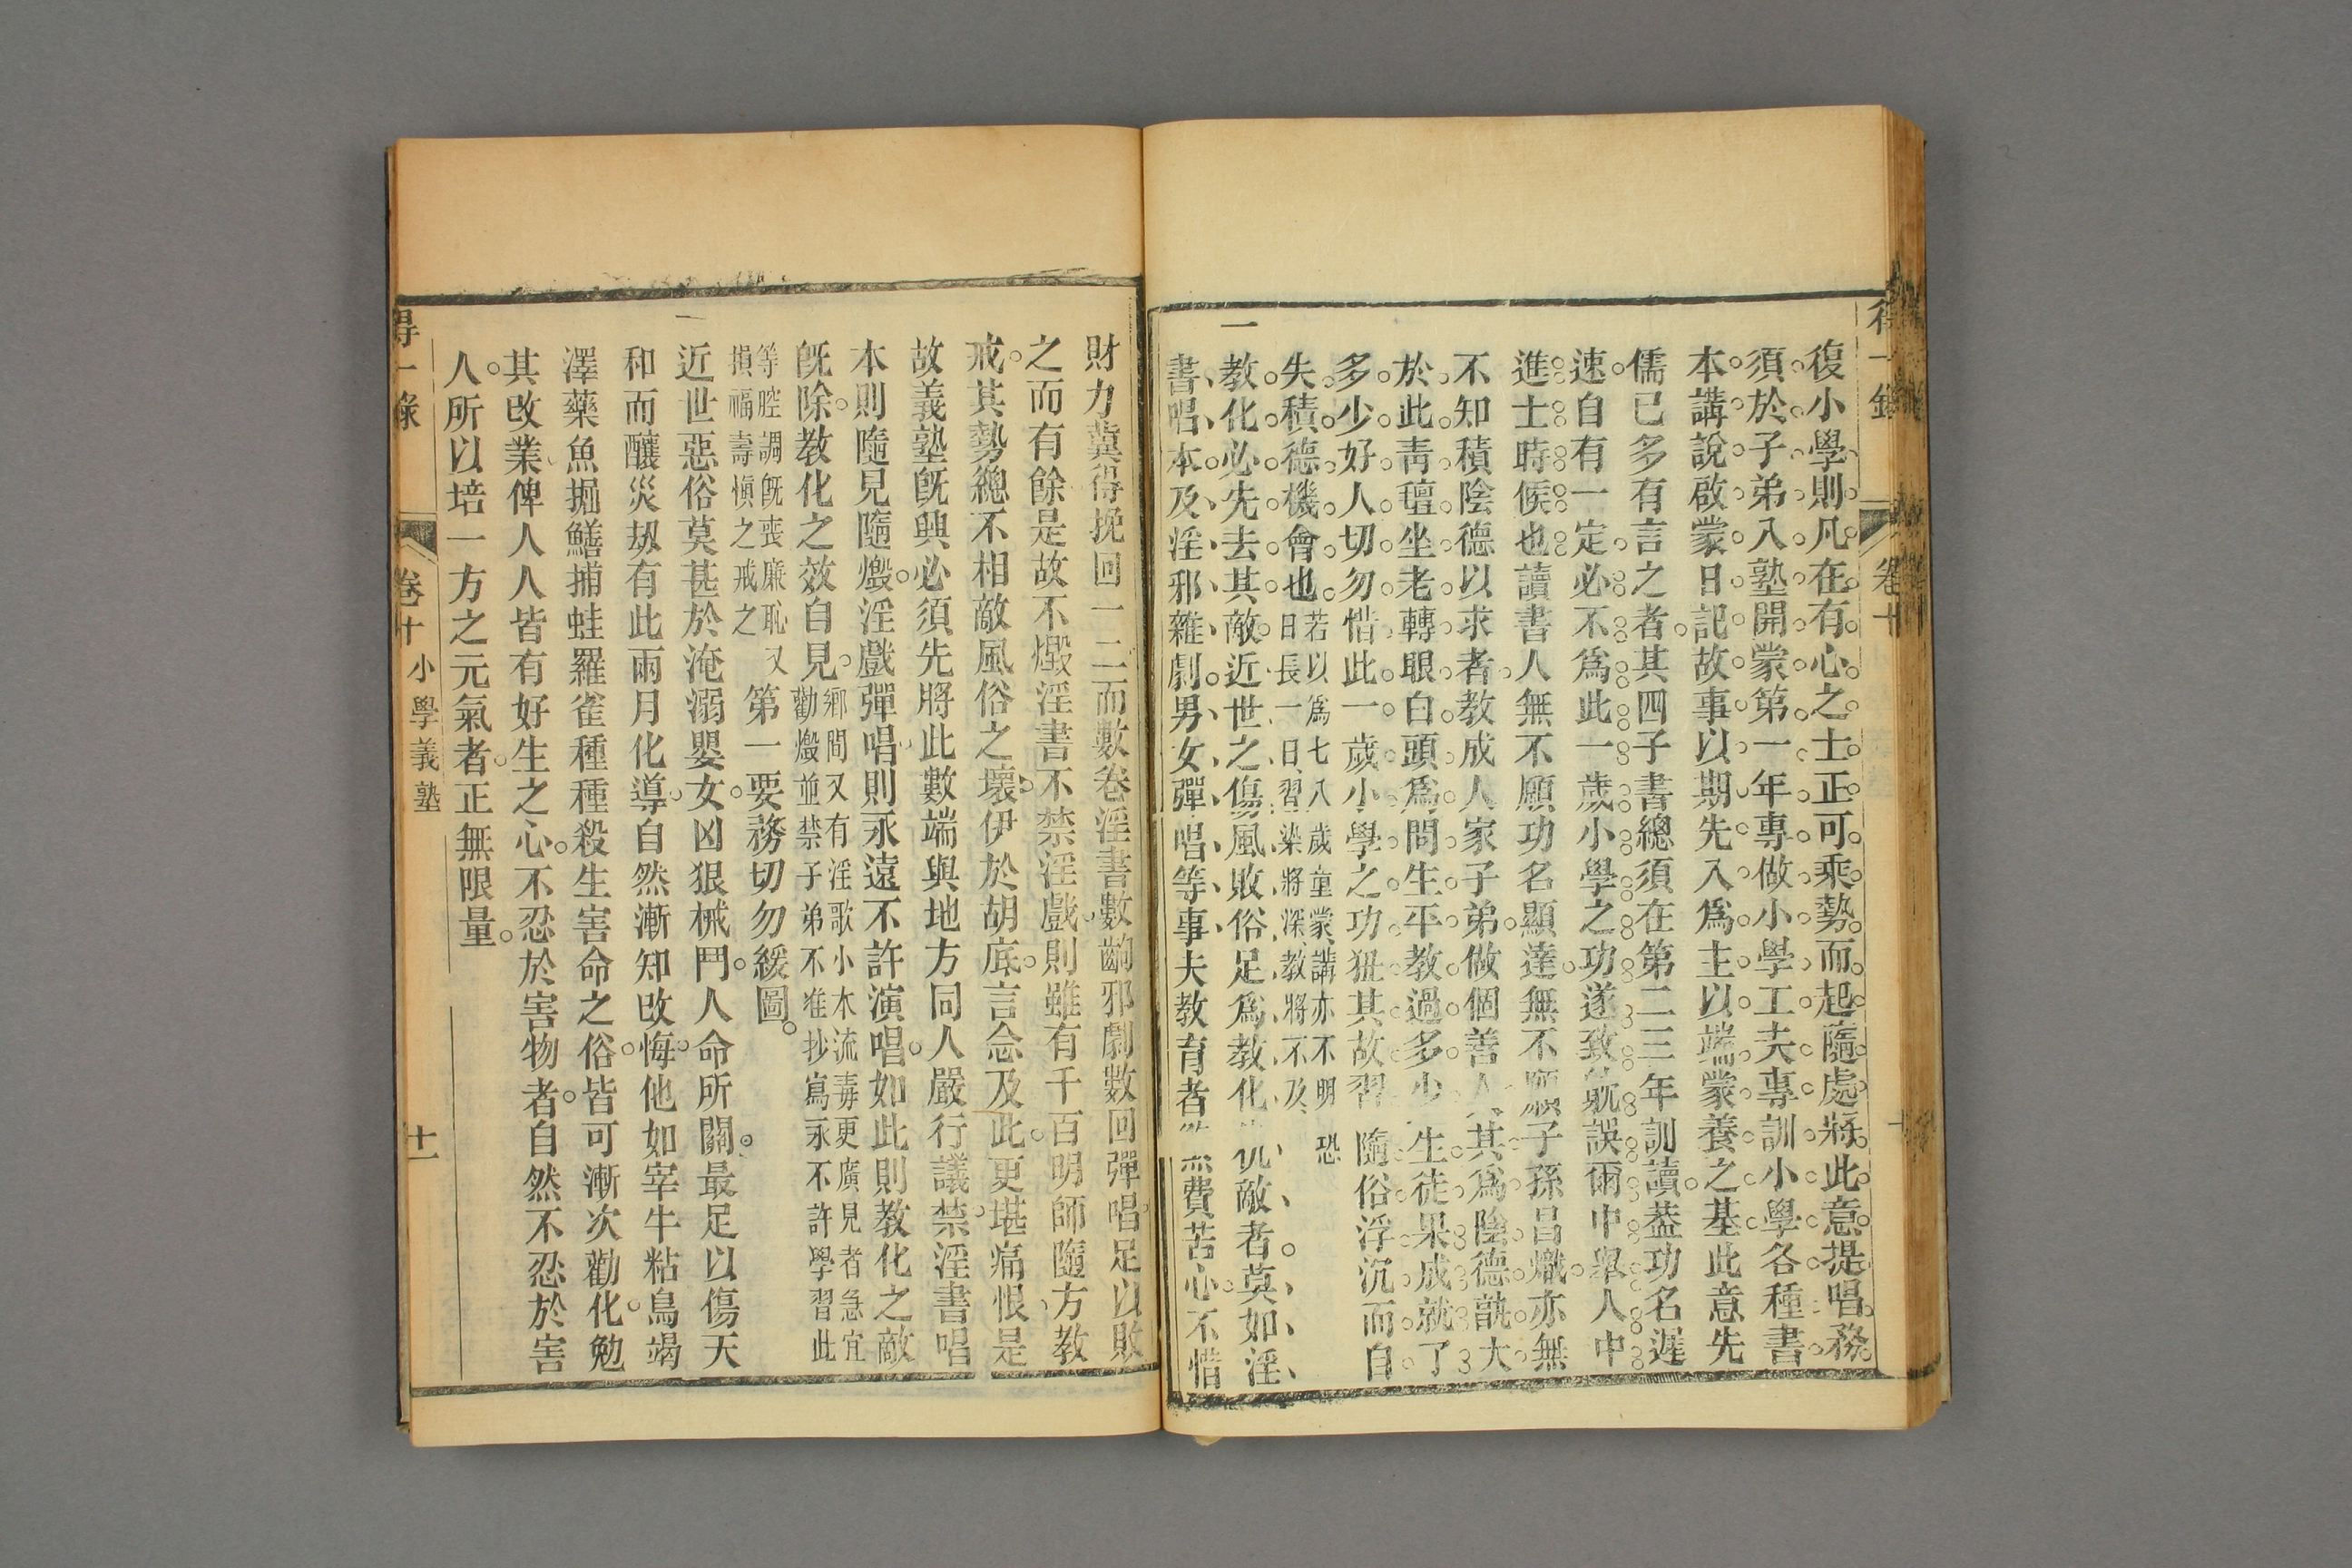 得一錄
卷十
復小學則凡在有心之士正可乘勢而起隨處將此意提唱務
須於子弟入塾開蒙第一年專做小學工夫專訓小學各種書
本講說啟蒙日記故事以期先入爲主以端蒙養之基此意先
儒已多有言之者其四子書總須在第二三年訓讀葢功名遲
速自有一定必不爲此一歲小學之功遂致躭誤爾中舉人中
進士時候也讀書人無不願功名顯達無不願子孫昌熾亦無
不知積陰德以求者教成人家子弟做個善人其爲陰德孰大
於此靑氊坐老轉眼白頭爲問生平教過多少生徒果成就了
多少好人切勿惜此一歲小學之功狃其故習隨俗浮沉而自
失積德機會也若以爲七八歲童蒙講亦不明恐日長一日習染將深教將不及
一教化必先去其敵近世之傷風敗俗足爲教化仇敵者莫如淫
書唱本及淫邪雜劇男女彈唱等事夫教育者費苦心不惜
財力冀得挽回一二而數卷淫書數齣邪劇數回彈唱足以敗
之而有餘是故不燬淫書不禁淫戲則雖有千百明師隨方教
戒其勢總不相敵風俗之壞伊於胡底言念及此更堪痛恨是
故義塾旣興必須先將此數端與地方同人嚴行議禁淫書唱
本則隨見隨燬淫戲彈唱則永遠不許演唱如此則教化之敵
旣除教化之效自見鄉間又有淫歌小本流毒更廣見者急宜勸燬並禁子弟不准抄寫永不許學習此
等腔調旣喪廉恥又損福壽愼之戒之第一要務切勿緩圖
一近世惡俗莫甚於淹溺嬰女凶狠械鬥人命所關最足以傷天
和而釀災刼有此兩月化導自然漸知改悔他如宰牛粘鳥竭
澤藥魚掘鱔捕蛙羅雀種種殺生害命之俗皆可漸次勸化勉
其改業俾人人皆有好生之心不忍於害物者自然不忍於害
人所以培一方之元氣者正無限量
得一錄
卷十
小學義塾
十一